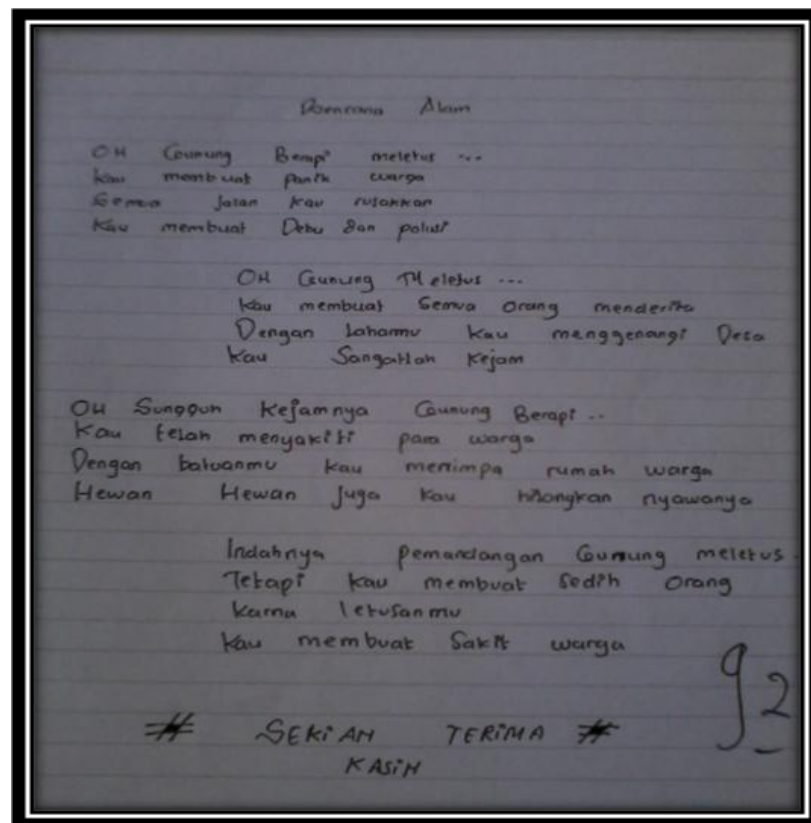 Bencana Alam
OH Gunung Berapi meletus ...
Kau membuat panik warga
Semua jalan kau rusakkan
Kau membuat Debu dan polusi
OH Gunung Meletus ...
Kau membuat Semua orang menderita
Dengan laharmu kau menggenangi Desa
Kau Sangatlah Kejam
OH Sungguh Kejamnya Gunung Berapi ..
Kau telah menyakiti para warga
Dengan batuanmu kau menimpa rumah warga
Hewan Hewan juga kau hilangkan nyawanya
Indahnya pemandangan Gunung meletus
Tetapi kau membuat sedih orang
Karna letusanmu
Kau membuat Sakit warga
92
# SEKiAN TERiMA #
KASiH